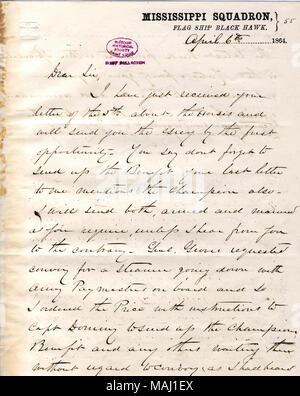 MISSISSIPPI SQUADRON,
FLAG SHIP BLACK HAWK,
55
April 6th 1864.
MISSOURI
HISTORICAL
SOCIETY
Dear Sir,
I have just received your
letter of the 5th about the Horses and
will send you the by the first
opportunity. You say dont forget to
send up the Benefit your last letter
to me mentions the Champion also
I will send both, armed and manned
as you require unless I hear from you
to the contrary. Genl. requested
convoy for a steamer going down with
army Paymasters on board and so
I ordered the Price with instructions to
Capt to send up the Champion,
Benefit and any others waiting there
without regard to convoy; as I had heard
alamy stock photo
MAJ1EX
www.alamy.com